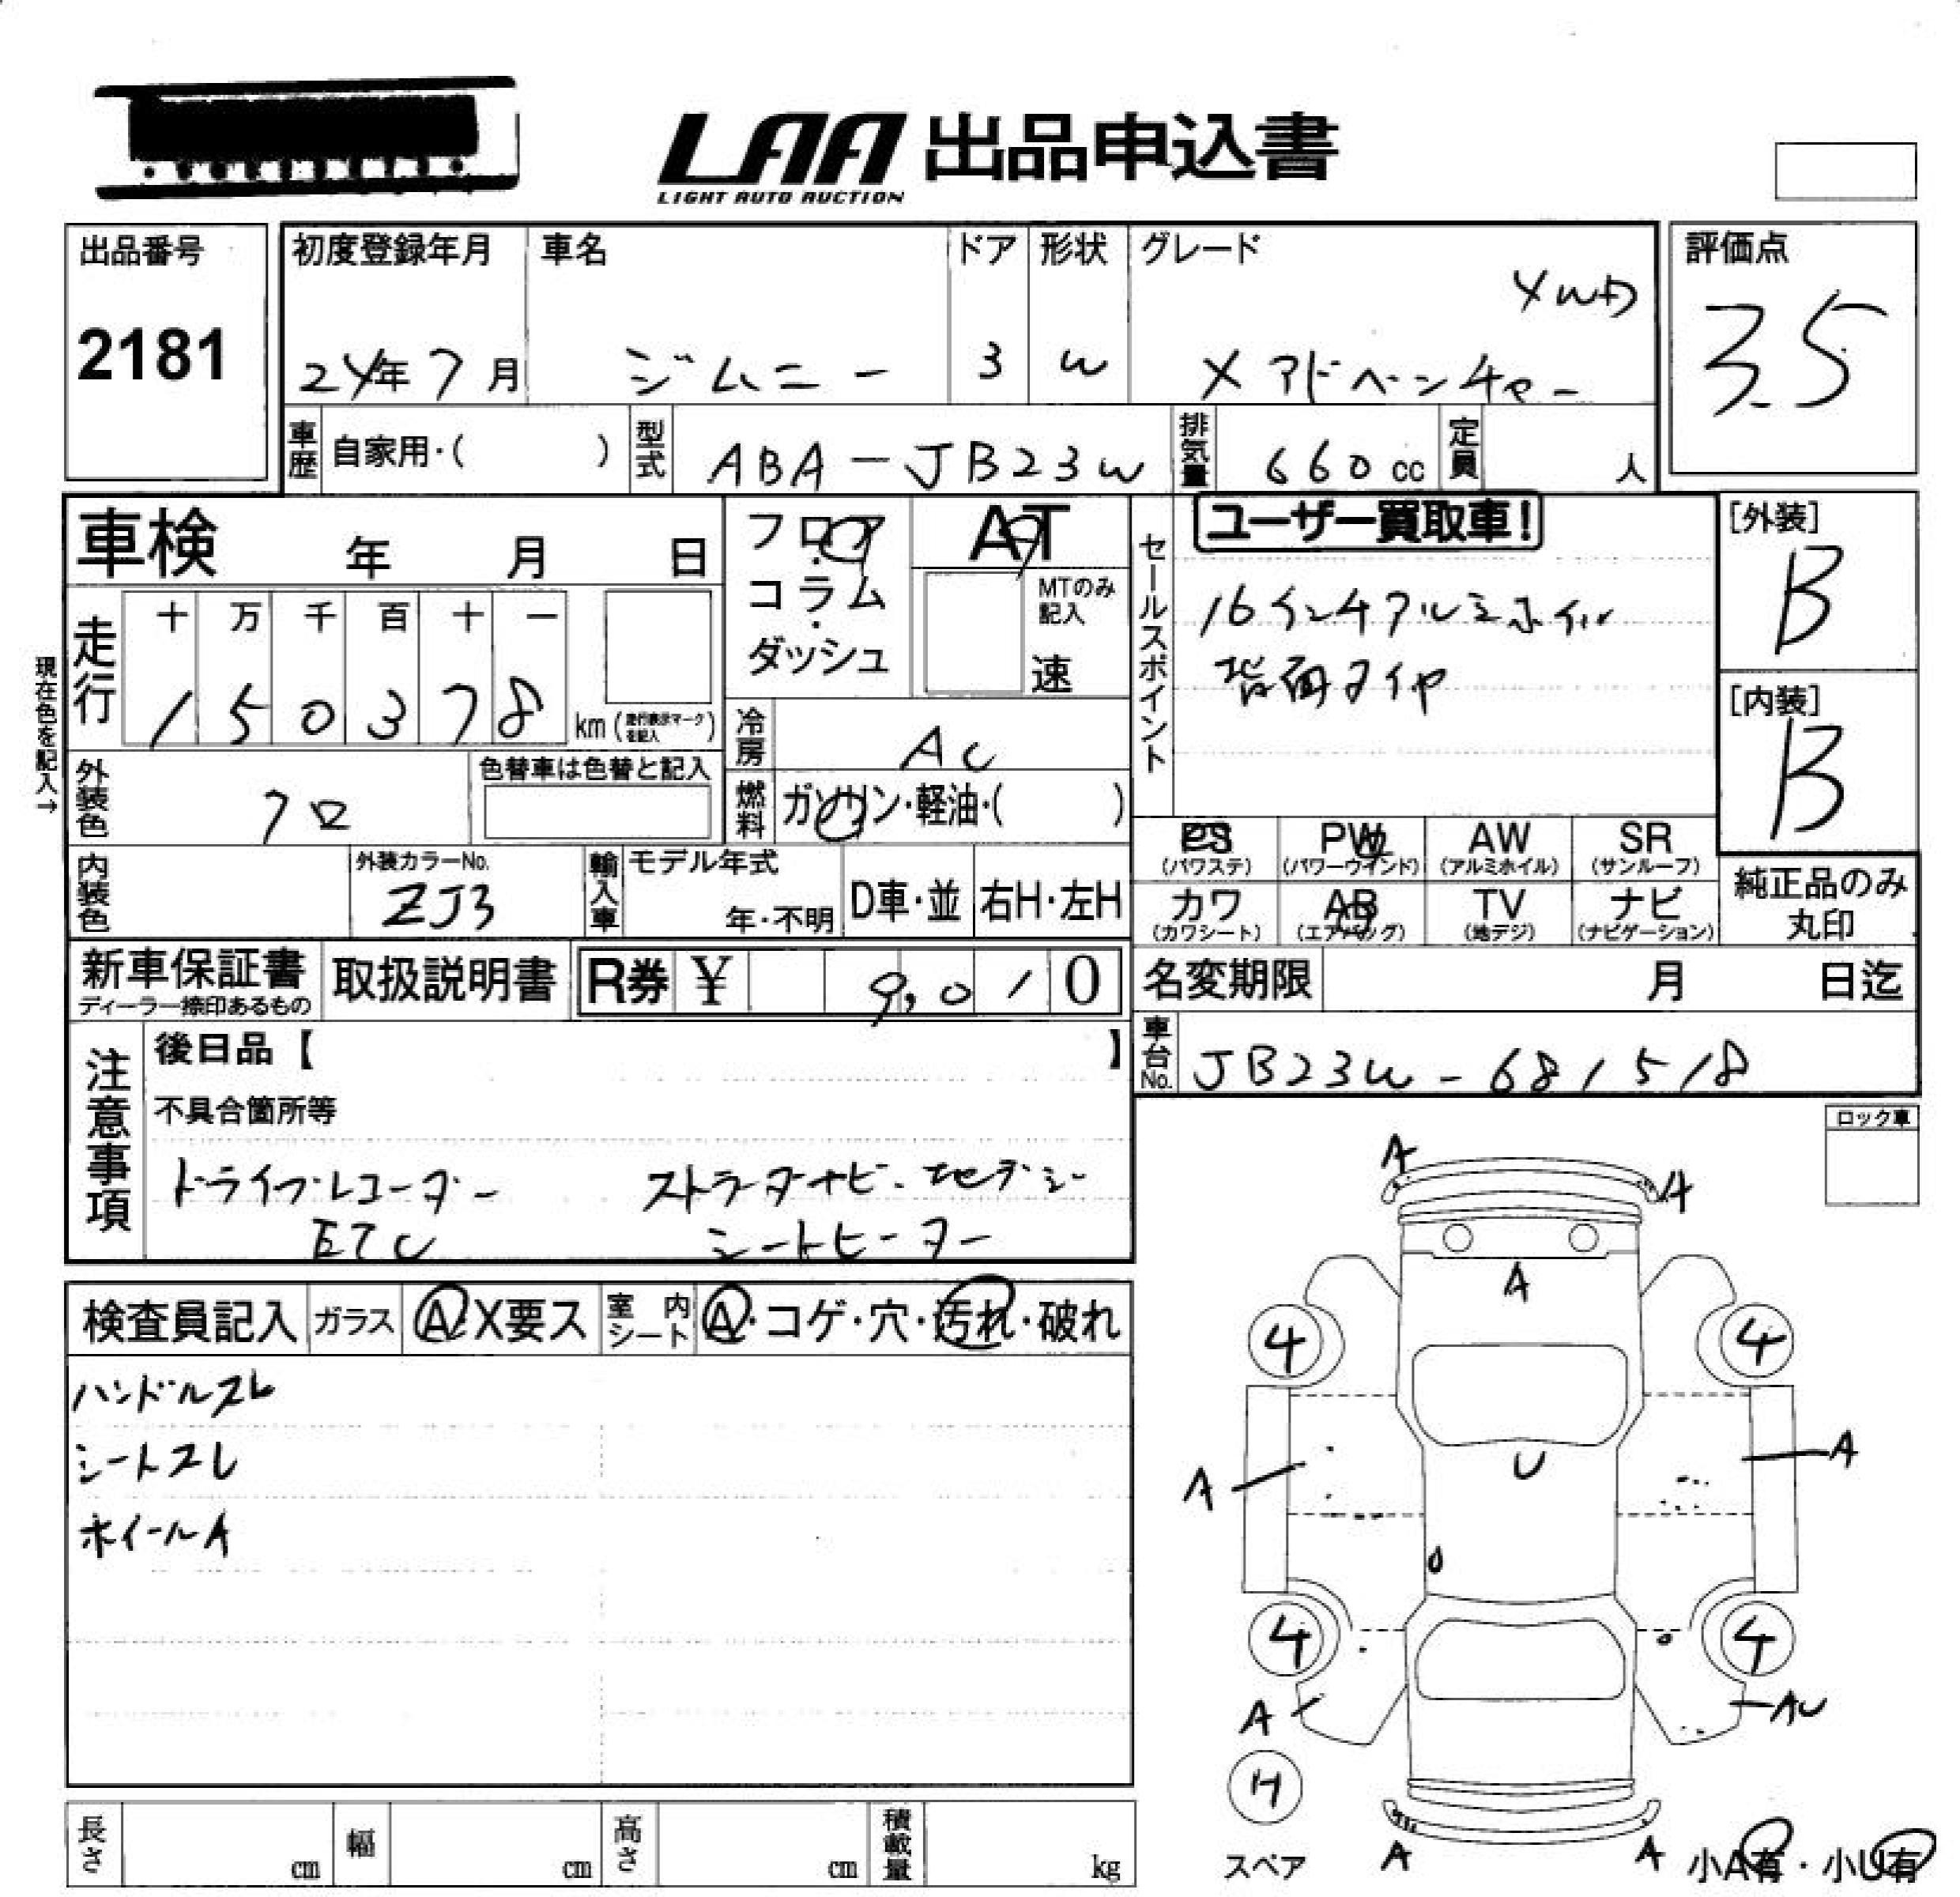 LAA 出品申込書
LIGHT AUTO AUCTION
出品番号
2181
初度登録年月
24年 7月
車名
ジムニー
ドア
3
形状
W
グレード
4WD
Xアドベンチャー
評価点
3.5
車歴
自家用・( )
型式
ABA-JB23W
排気量
660 cc
定員
人
車検 年 月 日
フロア
・
コラム
・
ダッシュ
AT
MTのみ
記入
速
セールスポイント
ユーザー買取車!
16インチアルミホイル
背面タイヤ
[外装]
B
[内装]
B
現在色を記入→
走行
十 万 千 百 十 一
1 5 0 3 7 8
km (走行表示マークを記入)
冷房
AC
燃料
ガソリン・軽油・( )
外装色
クロ
色替車は色替と記入
PS
(パワステ)
PW
(パワーウインド)
AW
(アルミホイル)
SR
(サンルーフ)
カワ
(カワシート)
AB
(エアバッグ)
TV
(地デジ)
ナビ
(ナビゲーション)
純正品のみ
丸印
内装色
外装カラーNo.
ZJ3
輸入車
モデル年式
年・不明
D車・並
右H・左H
新車保証書
ディーラー捺印あるもの
取扱説明書
R券 ¥ 9,010
名変期限 月 日迄
車台No.
JB23W-681518
注意事項
後日品【 】
不具合箇所等
ドライブレコーダー ストラーダナビ・地デジ
ETC シートヒーター
ロック車
検査員記入
ガラス
A X要ス
室内
シート
A・コゲ・穴・汚れ・破れ
ハンドルスレ
シートスレ
ホイールA
A
A
A
4
4
U
A
A
4
4
A
AU
4
スペア
A
A
小A有・小U有
長さ cm
幅 cm
高さ cm
積載量 kg